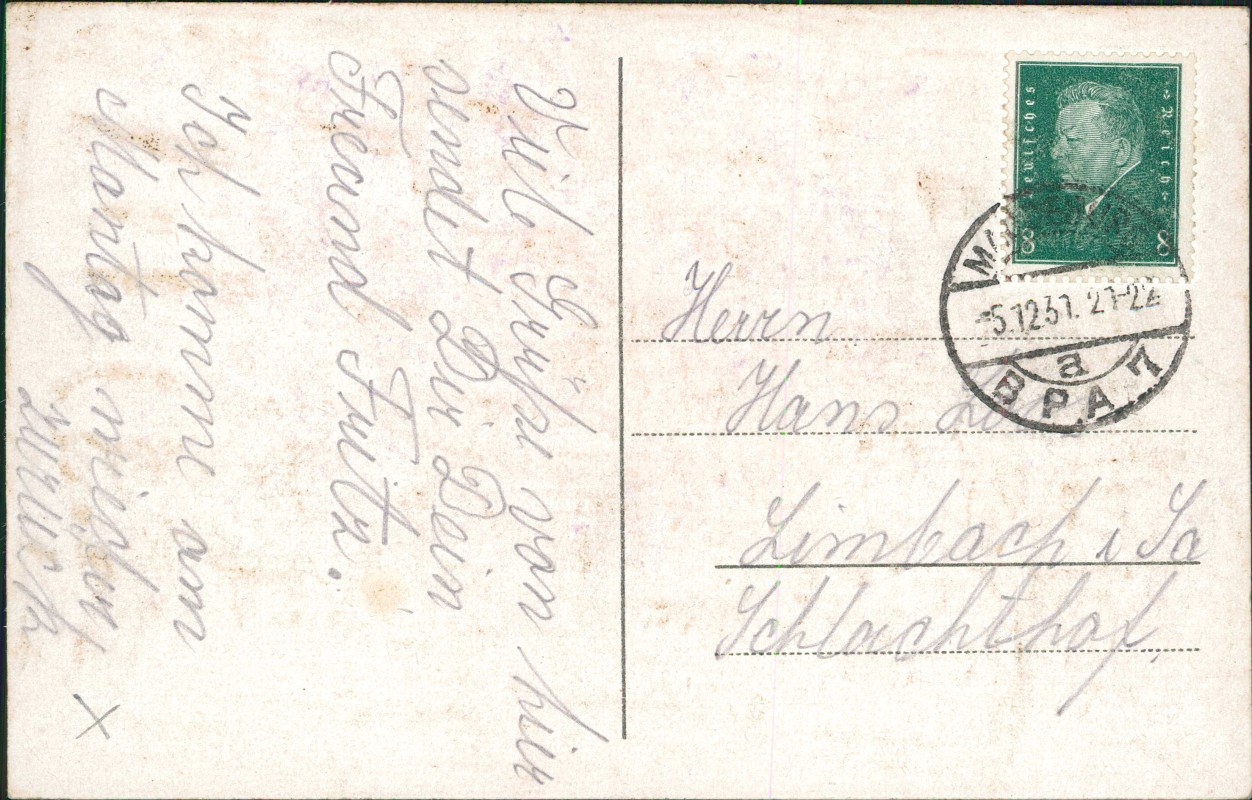 Viele Grüße von hier
sendet Dir Dein
Freund Fritz.
Ich komme am
Montag wieder
zurück
Deutsches Reich
8 8
5.12.31. 21-22
a
BPA 7
Herrn
Hans
Limbach i Sa
Schlachthof.